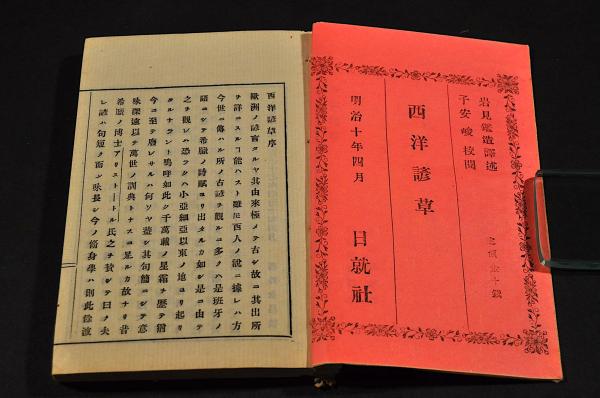 岩見鑑造譯述
子安峻校閲
西洋諺草
明治十年四月 日就社
西洋諺草序
歐洲ノ諺言タルヤ其由來極メテ古シ故ニ其出所
ヲ詳ニスルヿ能ハスト雖𪜈西人ノ說ニ據レハ方
今世ニ傳ハル所ノ古諺ヲ觀ルニ多クハ是班牙ノ
語ニシテ希臘ノ詩賦ヨリ出タルカ如シ是ニ由テ
之ヲ觀レハ恐ラクハ小亞細亞以東ノ地ヨリ起リ
タルナラント嗚呼如此ク千萬載ノ星霜ヲ歷テ猶
今ニ至テ廢レサルハ何ソヤ蓋シ其句簡ニシテ意
味深遠以テ萬世ノ訓典トナスニ足ルカ故ナリ昔
希臘ノ博士アリストートル氏之ヲ贊シテ曰ク夫
レ諺ハ句短フ而シ味長シ今ノ脩身學ハ則此餘波